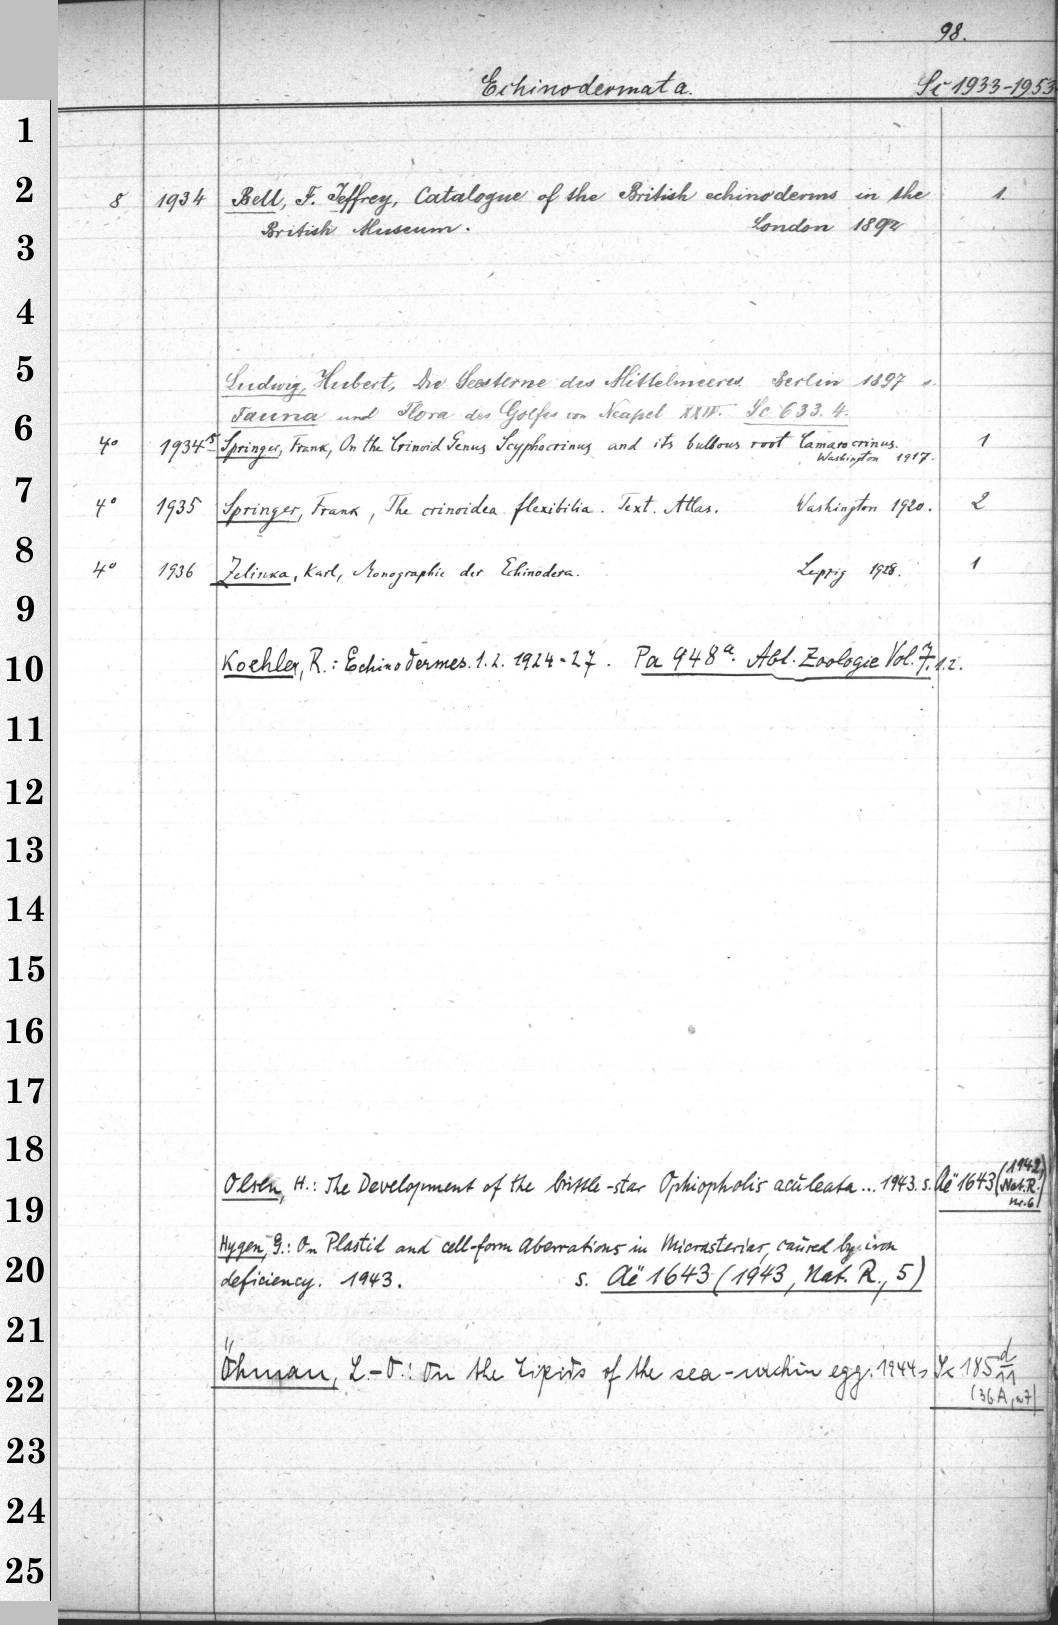 98.
Echinodermata. Sc 1933-1953
1
2
3
4
5
6
7
8
9
10
11
12
13
14
15
16
17
18
19
20
21
22
23
24
25
8 1934 Bell, F. Jeffrey, Catalogue of the British echinoderms in the 1.
British Museum. London 1892
Ludwig, Hubert, Die Seesterne des Mittelmeeres Berlin 1897 s.
Fauna und Flora des Golfes von Neapel XXIV. Sc 633.4.
4° 1934 5 Springer, Frank, On the Crinoid Genus Scyphocrinus and its bulbous root Camarocrinus. 1
Washington 1917.
4° 1935 Springer, Frank, The crinoidea flexibilia. Text. Atlas. Washington 1920. 2
4° 1936 Zelinka, Karl, Monographie der Echinodera. Leipzig 1928. 1
Koehler, R.: Echinodermes. 1.2. 1924-27. Pa 948 a. Abt. Zoologie Vol. 7, 1.2.
Olsen, H.: The Development of the brittle-star Ophiopholis aculeata... 1943. s. Aë 1643 (1942, Nat.R. nr.6)
Hygen, G.: On Plastid and cell-form Aberrations in Micrasterias, caused by iron
deficiency. 1943. s. Aë 1643 (1943, Nat. R., 5)
Öhman, L.-O.: On the Lipids of the sea-urchin egg. 1944 s Sc 185 d/11
(36 A, n 7)